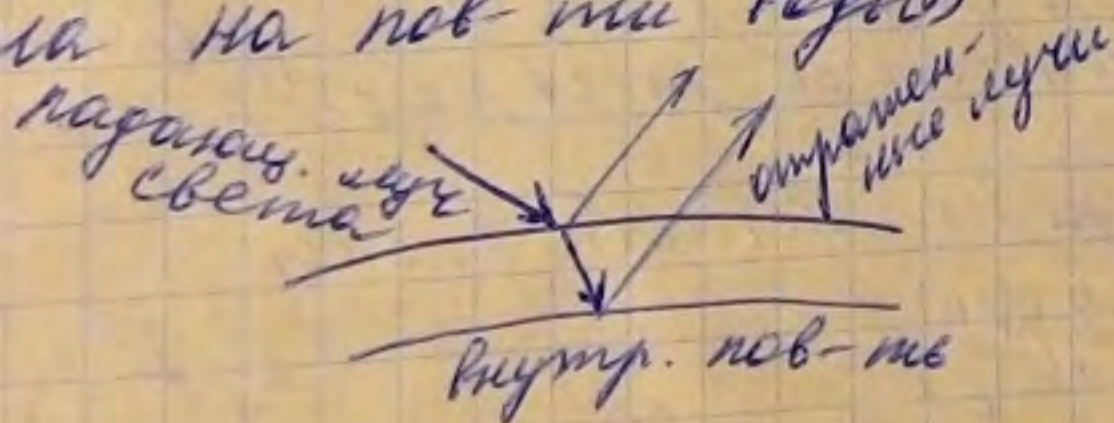 ла на пов-ти воды)
падающ. луч
света
отражен-
ные лучи
внутр. пов-ть